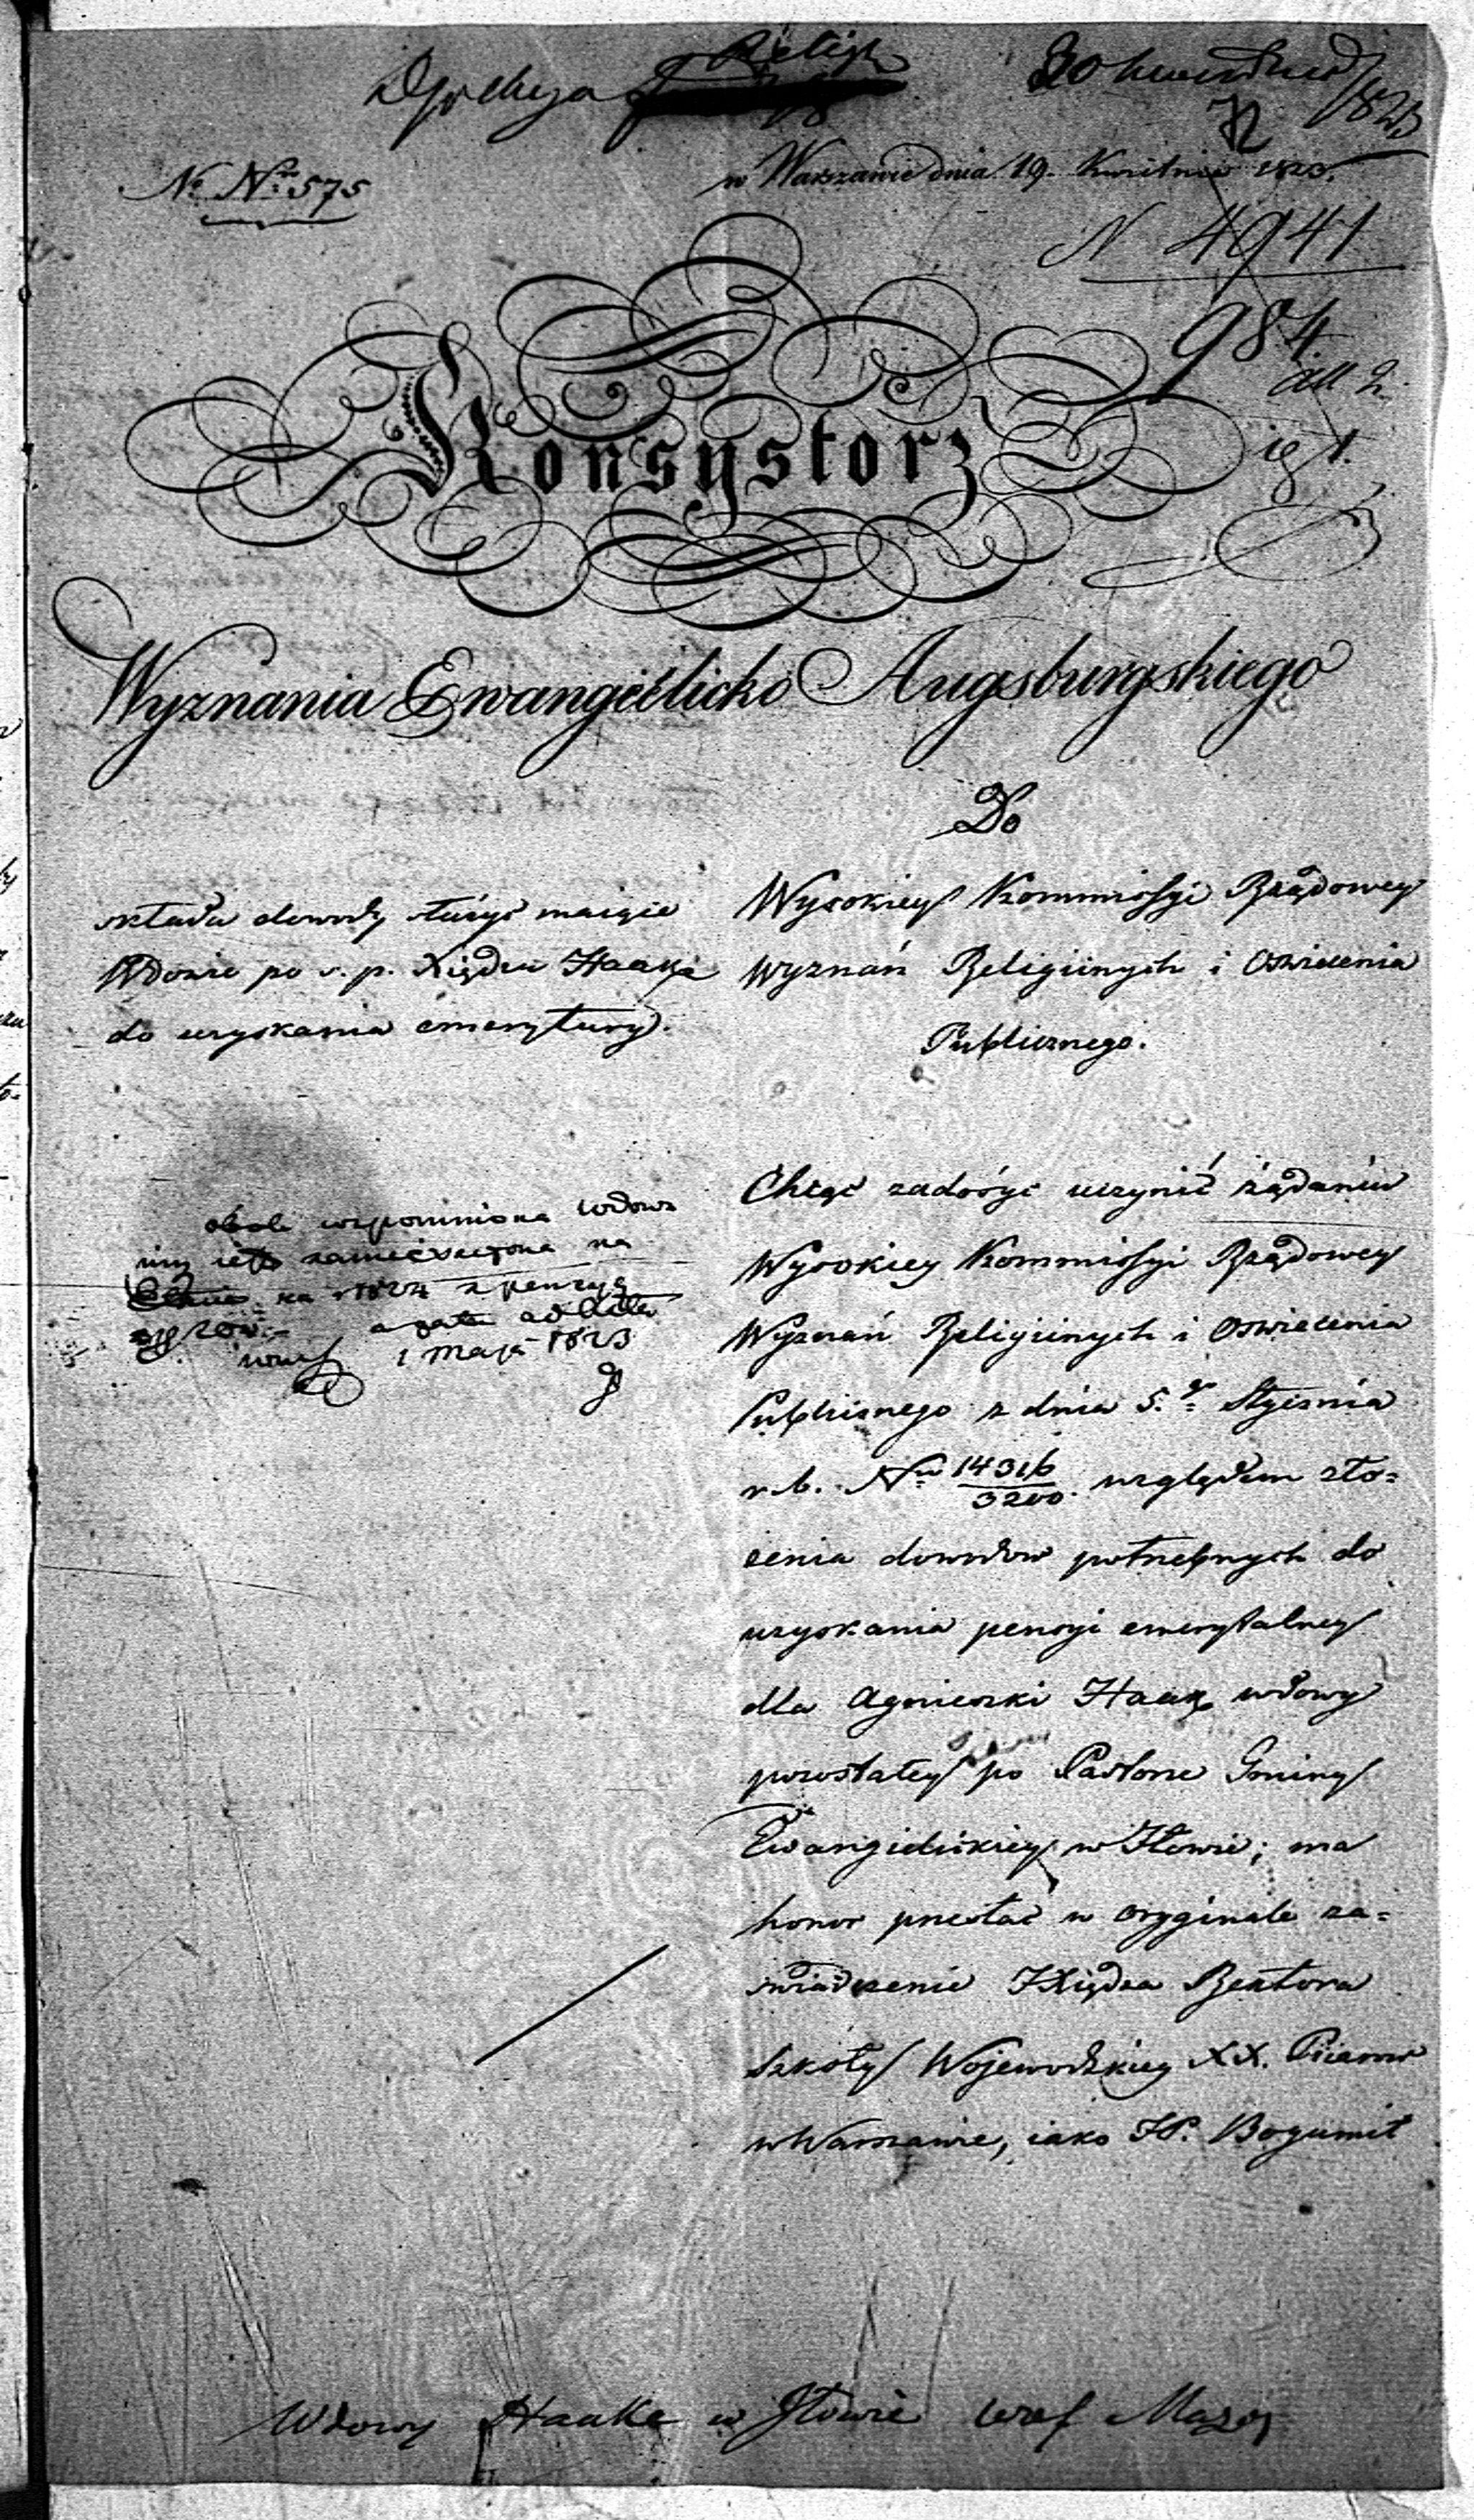 Dyrekcya Religii
30 kwietnia 1823
N. Nro 575
w Warszawie dnia 19. Kwietnia 1823.
N 4941
984
all 2.
Konsystorz
Wyznania Ewangielicko Augsburgskiego
Do
Wysokiey Kommissyi Rządowey
Wyznań Religiinych i Oswiecenia
Publicznego.
składa dowody służyć maiące
Wdowie po ś. p. Xiędzu Haake
do uzyskania emerytury.
wspomniona wdowa
iuż iest zamieszczona na
na 1823 z pensyą
1 Maja 1823
Chcąc zadosyć uczynić żądaniu
Wysokiey Kommissyi Rządowey
Wyznań Religiinych i Oswiecenia
Publicznego z dnia 5.go Stycznia
r. b. Nro 14316/3200. względem zło=
żenia dowodow potrzebnych do
uzyskania pensyi emerytalney
dla Agnieszki Haake wdowy
pozostałey po Pastorze Gminy
Ewangielickiey w Iłowie; ma
honor przesłać w oryginale za=
swiadczenie JXiędza Rektora
Szkoły Wojewodzkiey XX. Piiarow
w Warszawie, iako JP. Bogumił
Wdowy Haake w Iłowie Maz